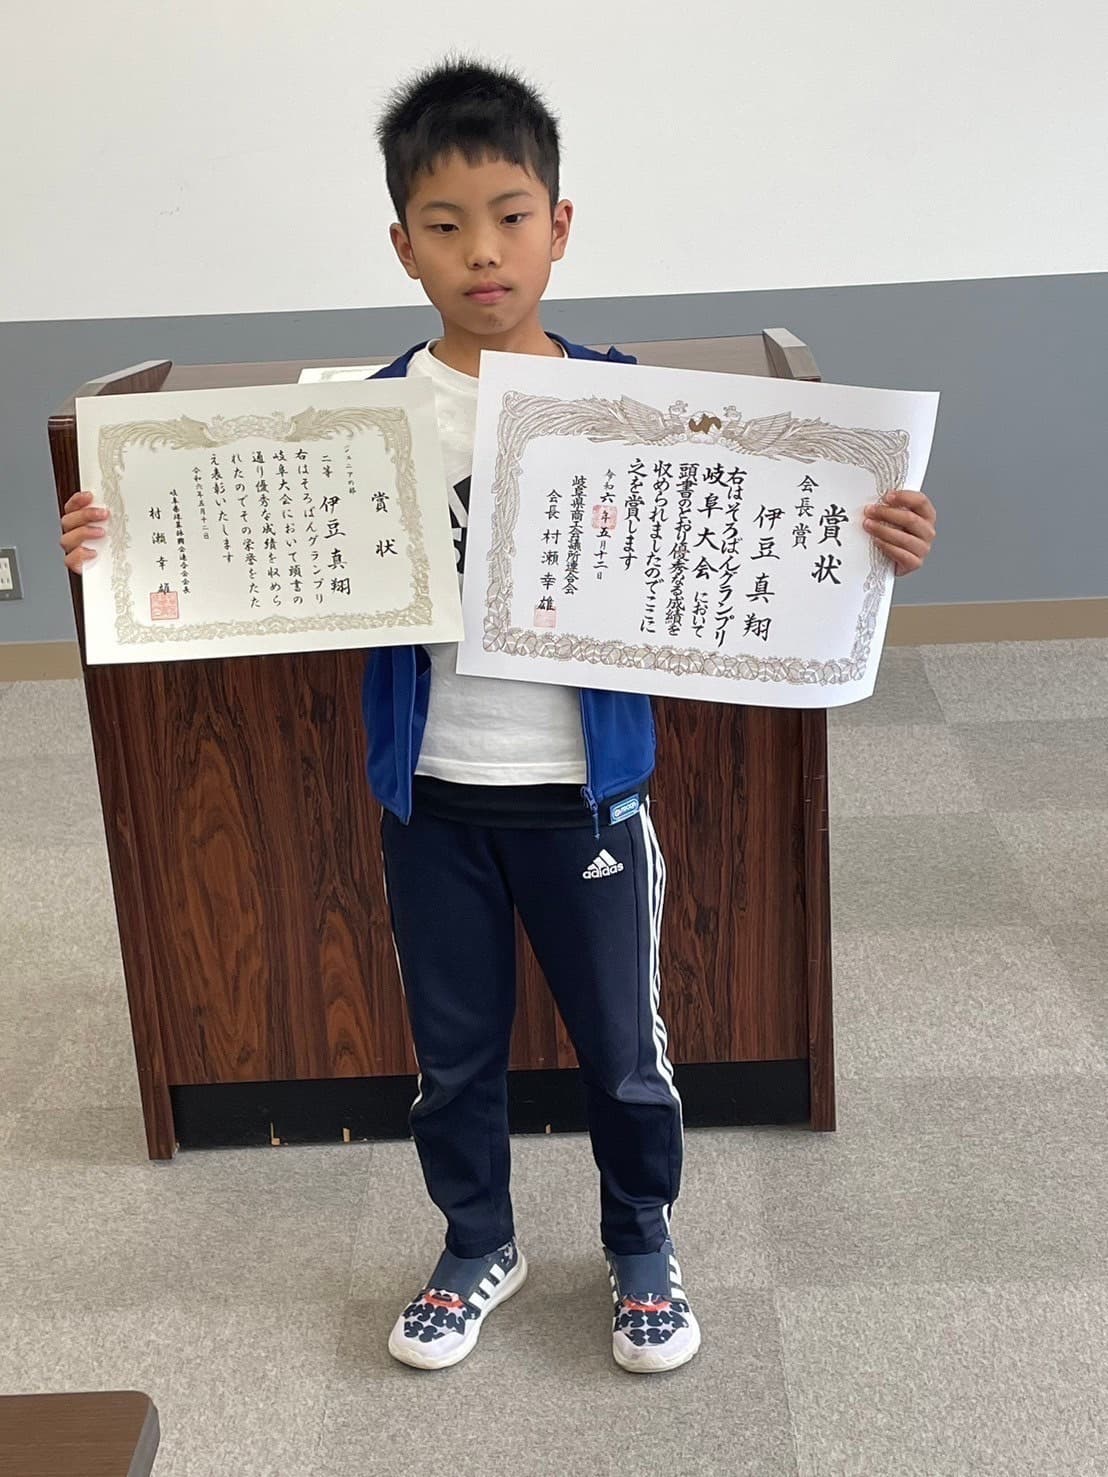 賞状
ジュニアの部
二等 伊豆真翔
右はそろばんグランプリ
岐阜大会において頭書の
通り優秀な成績を収めら
れたのでその栄誉をたた
え表彰いたします
令和六年五月十二日
村瀬幸雄
賞状
会長賞
伊豆真翔
右はそろばんグランプリ
岐阜大会において
頭書のとおり優秀なる成績を
収められましたのでここに
之を賞します
令和六年五月十二日
岐阜県商工会議所連合会
会長 村瀬幸雄
adidas